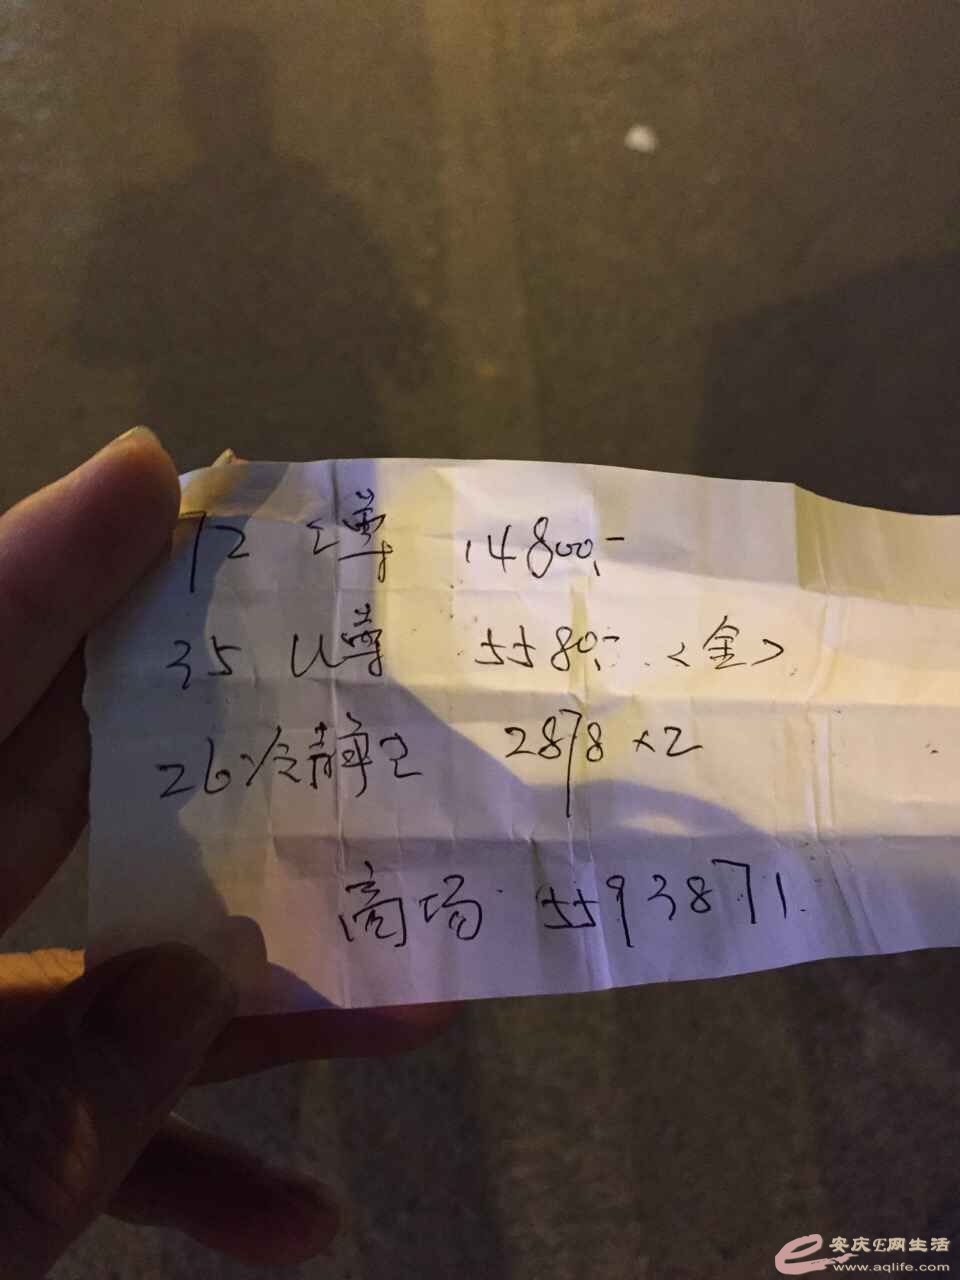 72 i尊 14800.-
35 U尊 5580.- <金>
26冷静王 2878×2
商场 5593871.
安庆E网生活
www.aqlife.com